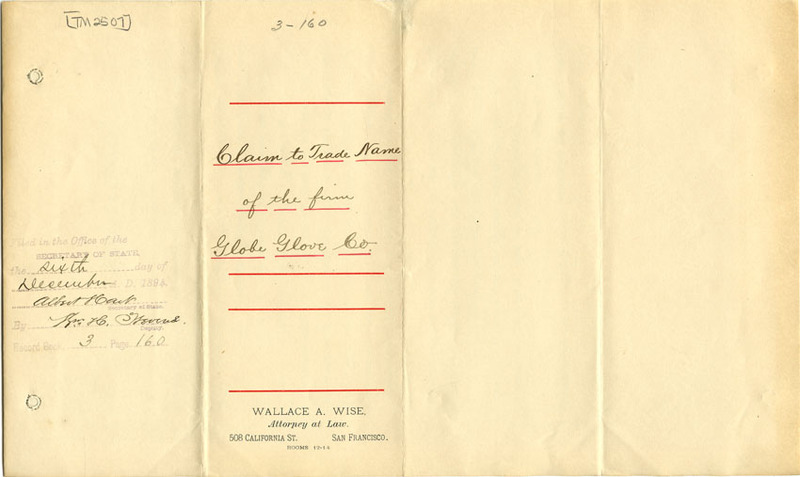 [TM2507]
3-160
Claim to Trade Name
of the firm
Globe Glove Co.
Filed in the Office of the
SECRETARY OF STATE
the sixth day of
December A. D. 189
Albert Hart
Secretary of State.
By Wm. H. Stevens.
Deputy.
Record Book 3 Page 160
WALLACE A. WISE,
Attorney at Law.
508 CALIFORNIA ST. SAN FRANCISCO.
ROOMS 12-14